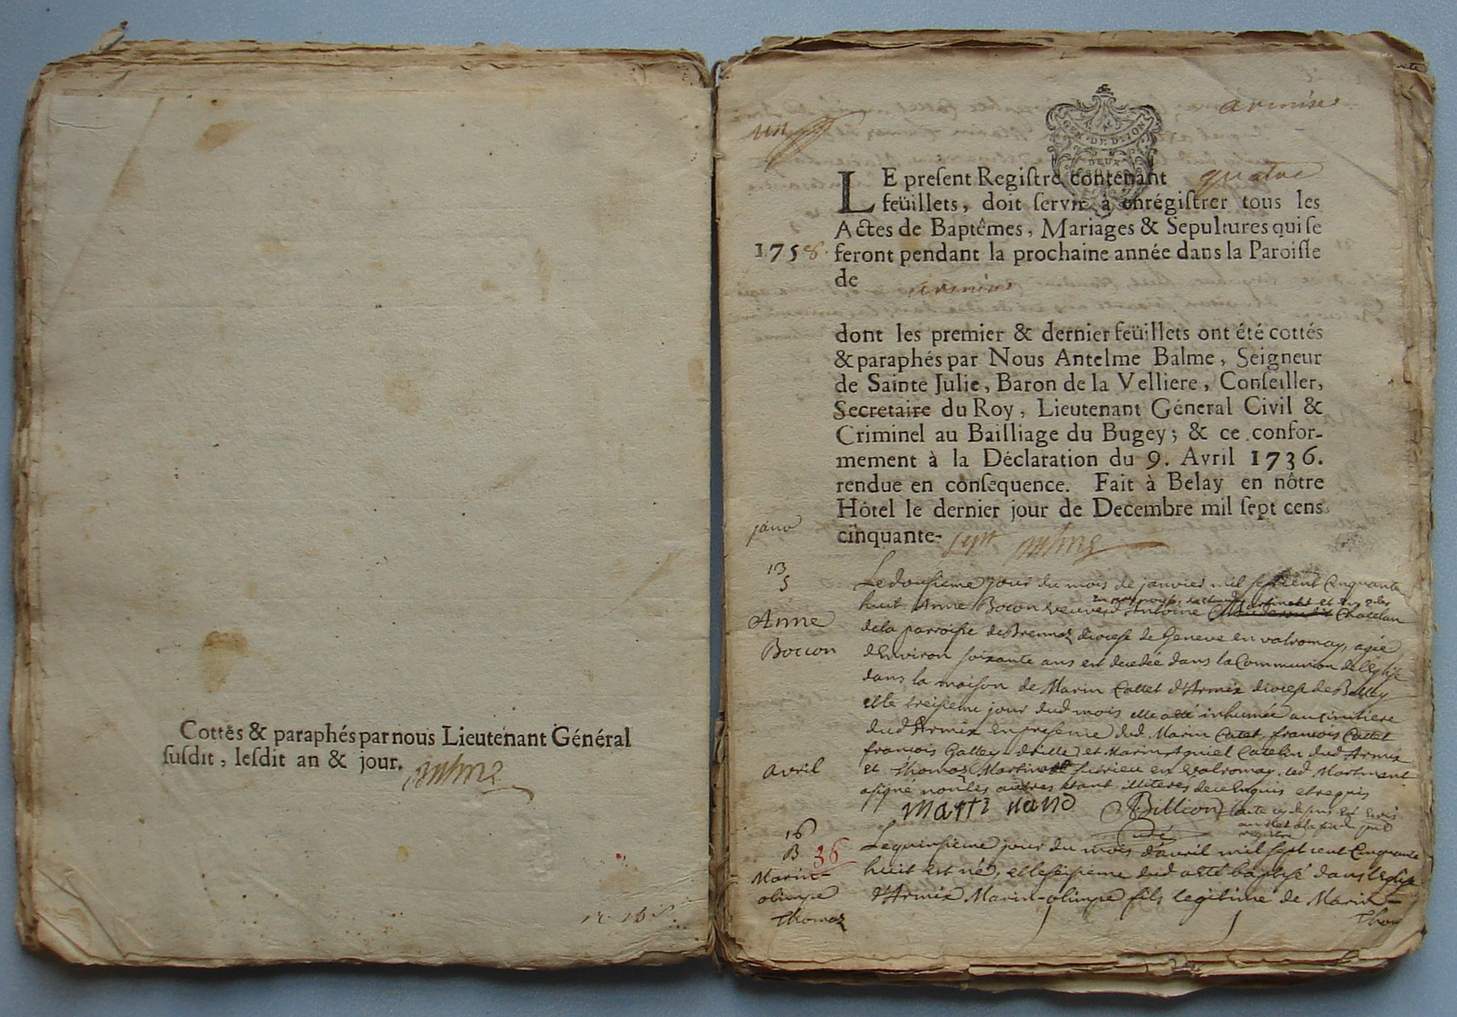 Cottés & paraphés par nous Lieutenant Général
susdit, lesdit an & jour.
un
GEN. DE DIJON
DEUX
armix
LE present Registre contenant quatre
feüillets, doit servir à enrégistrer tous les
Actes de Baptêmes, Mariages & Sepultures qui se
1758. feront pendant la prochaine année dans la Paroisse
de armix
dont les premier & dernier feüillets ont été cottés
& paraphés par Nous Antelme Balme, Seigneur
de Sainte Julie, Baron de la Velliere, Conseiller,
Secretaire du Roy, Lieutenant Géneral Civil &
Criminel au Bailliage du Bugey; & ce confor-
mement à la Déclaration du 9. Avril 1736.
rendue en consequence. Fait à Belay en nôtre
Hôtel le dernier jour de Decembre mil sept cens
cinquante- sept
janv
13
S
Anne
Boccon
Le dousieme jour du mois de janvier mil sept cent Cinquante
huit Anne Bocon veuve d'Antoine Chatelan
de la parroisse de Brenaz diocese de Geneve en valromay, agée
d'Environ soixante ans est decedée dans la Communion de l'eglise
dans la maison de Marin Cattet d'Armix diocese de Belley
et le treisieme jour dud mois elle a été inhumée au cimitiere
dud Armix en presence dud. Marin Catet, francois Cattet
francois Gallay et Marin Catelin dud Armix
et Thomas Martinand en valromay. led Martinant
a signé non les autres etant illiteres de ce enquis et requis
marti nand Billion
avril
16
B 36
Marin-
olimpe
Thomaz
Le quinsieme jour du mois d'avril mil sept cent Cinquante
huit est né, et le seisieme dud a été baptisé dans l'eglise
d'Armix Marin-olimpe fils legitime de Marin-
Thom